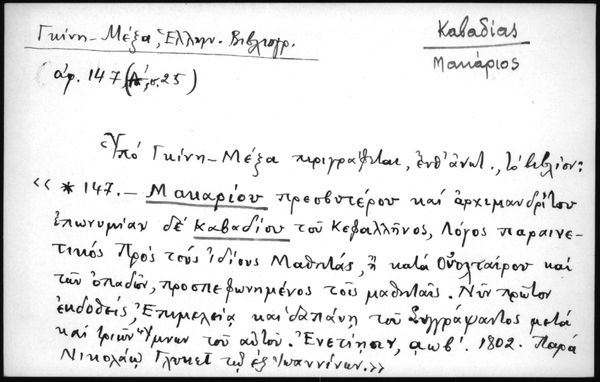 Γκίνη-Μέξα, Ἑλλην. Βιβλιογρ.
Καβαδίας
Μακάριος
ἀρ. 147 (Α', σ. 25)
Ὑπό Γκίνη-Μέξα περιγράφεται, ἐνθ' ἀνωτ., τό βιβλίον:
«*147.- Μακαρίου πρεσβυτέρου καί ἀρχιμανδρίτου
ἐπωνυμίαν δέ Καβαδίου τοῦ Κεφαλλῆνος, Λόγος παραινε-
τικός Πρός τούς ἰδίους Μαθητάς, ἤ κατά Οὐολταίρου καί
τῶν ὀπαδῶν, προσπεφωνημένος τοῖς μαθηταῖς. Νῦν πρῶτον
ἐκδοθείς, Ἐπιμελείᾳ καί δαπάνῃ τοῦ Συγγράψαντος μετά
καί τριῶν Ὕμνων τοῦ αὐτοῦ. Ἐνετίησιν, αωβ'. 1802. Παρά
Νικολάῳ Γλυκεῖ τῷ ἐξ Ἰωαννίνων.»